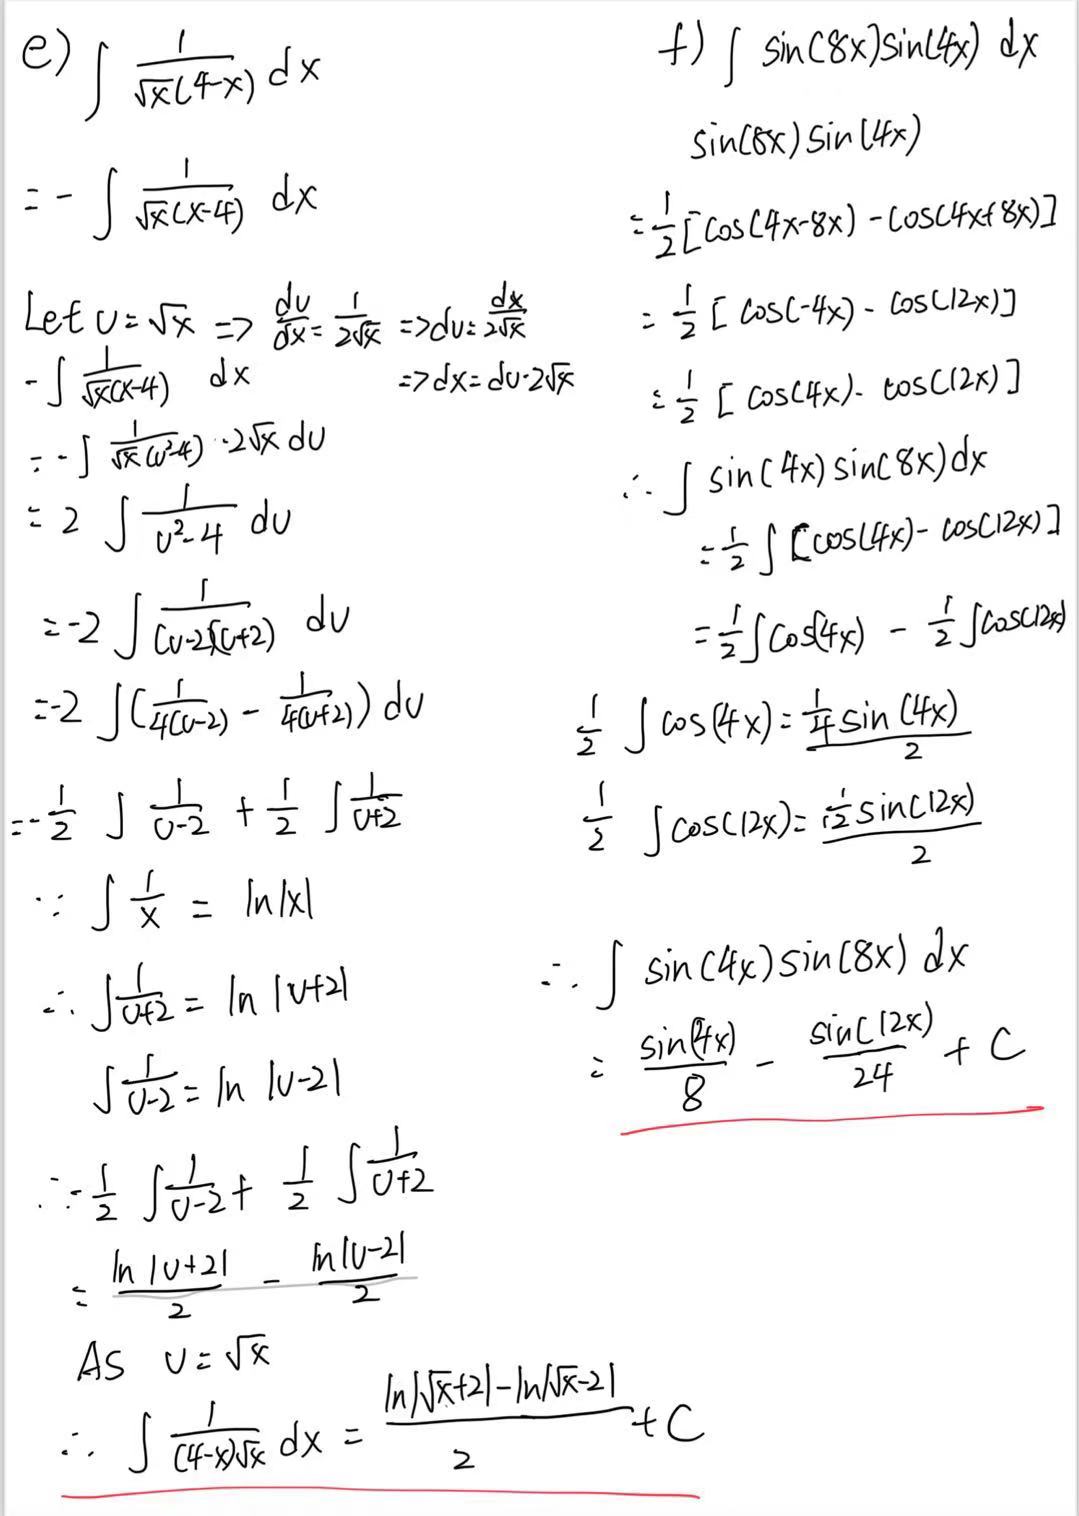 e) ∫ 1/(√x(4-x)) dx
= - ∫ 1/(√x(x-4)) dx
Let u = √x => du/dx = 1/(2√x) => du = dx/(2√x)
- ∫ 1/(√x(x-4)) dx => dx = du·2√x
= - ∫ 1/(√x(u²-4)) ·2√x du
= 2 ∫ 1/(u²-4) du
= -2 ∫ 1/((u-2)(u+2)) du
= -2 ∫ (1/(4(u-2)) - 1/(4(u+2))) du
= -1/2 ∫ 1/(u-2) + 1/2 ∫ 1/(u+2)
∵ ∫ 1/x = ln|x|
∴ ∫ 1/(u+2) = ln |u+2|
∫ 1/(u-2) = ln |u-2|
∴ -1/2 ∫ 1/(u-2) + 1/2 ∫ 1/(u+2)
= ln |u+2|/2 - ln|u-2|/2
As u = √x
∴ ∫ 1/((4-x)√x) dx = (ln|√x+2| - ln|√x-2|)/2 + C
f) ∫ sin(8x)sin(4x) dx
sin(8x) sin(4x)
= 1/2 [cos(4x-8x) - cos(4x+8x)]
= 1/2 [cos(-4x) - cos(12x)]
= 1/2 [cos(4x) - cos(12x)]
∴ ∫ sin(4x) sin(8x) dx
= 1/2 ∫ [cos(4x) - cos(12x)]
= 1/2 ∫ cos(4x) - 1/2 ∫ cos(12x)
1/2 ∫ cos(4x) = (1/4 sin(4x))/2
1/2 ∫ cos(12x) = (1/12 sin(12x))/2
∴ ∫ sin(4x) sin(8x) dx
= sin(4x)/8 - sin(12x)/24 + C